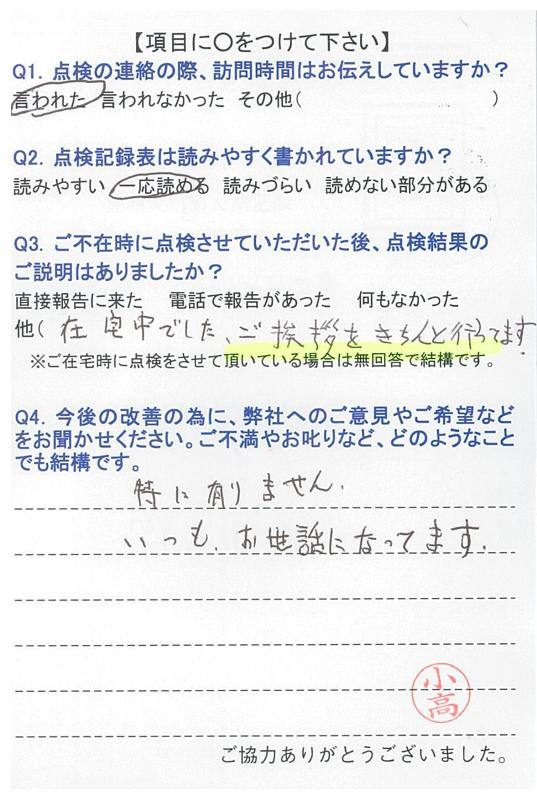 【項目に〇をつけて下さい】
Q1. 点検の連絡の際、訪問時間はお伝えしていますか？
言われた 言われなかった その他( )
Q2. 点検記録表は読みやすく書かれていますか？
読みやすい 一応読める 読みづらい 読めない部分がある
Q3. ご不在時に点検させていただいた後、点検結果の
ご説明はありましたか？
直接報告に来た 電話で報告があった 何もなかった
他( 在宅中でした、ご挨拶をきちんと行ってます.
※ご在宅時に点検をさせて頂いている場合は無回答で結構です。
Q4. 今後の改善の為に、弊社へのご意見やご希望など
をお聞かせください。ご不満やお叱りなど、どのようなこと
でも結構です。
特に有りません.
いつも、お世話になってます.
小高
ご協力ありがとうございました。